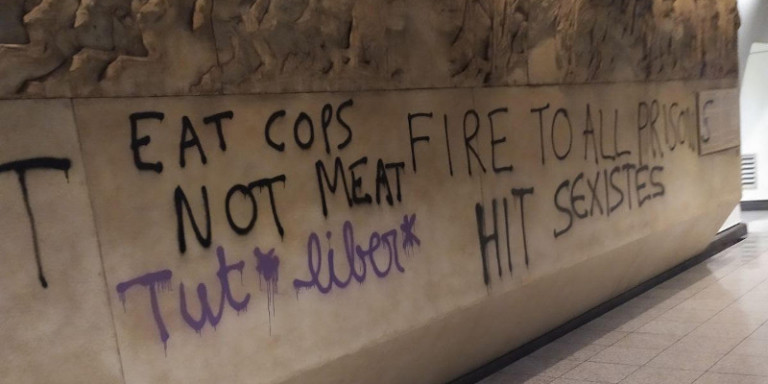 T
EAT COPS
NOT MEAT
Tut* liber*
FIRE TO ALL PRISONS
HIT SEXISTES